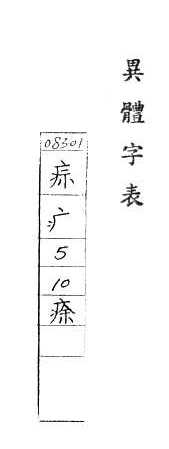 異體字表
08301
疒
5
10
瘵